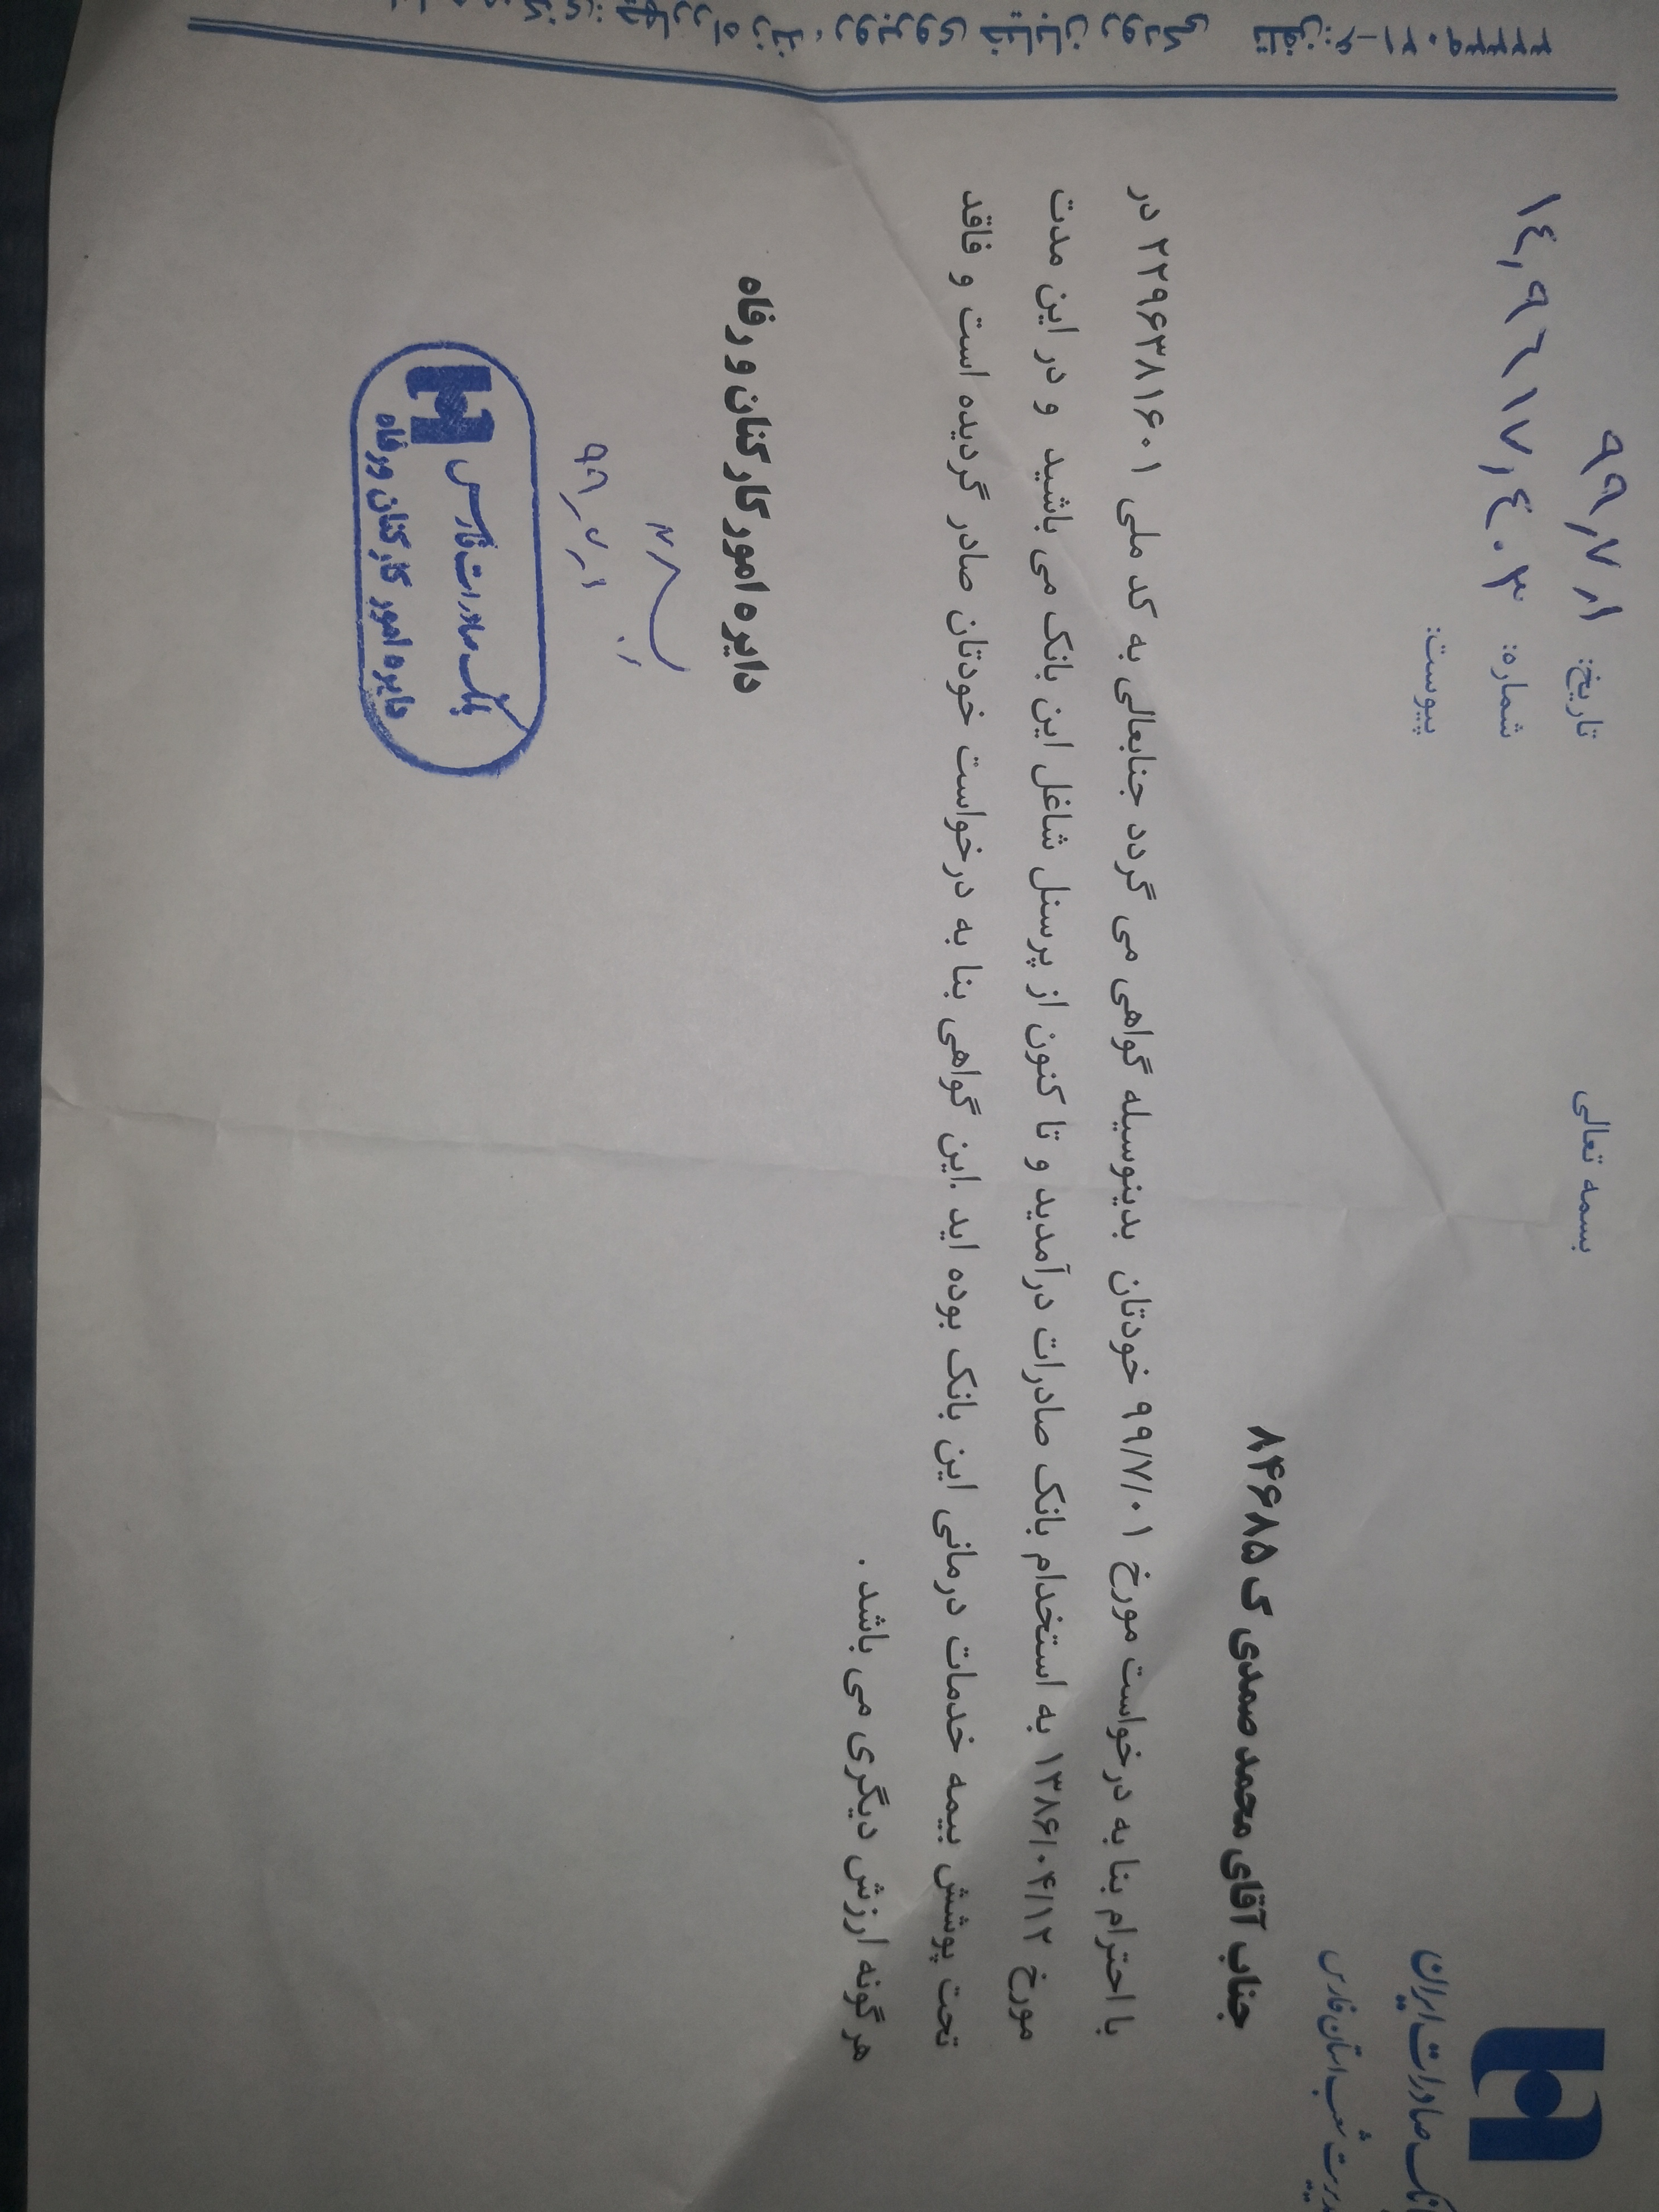 بسمه تعالی
بانک صادرات ایران
مدیریت شعب استان فارس
تاریخ: ۹۹٫۷٫۱
شماره: ۱٤٫۹٦۱۷٫٤۰۳
پیوست:
جناب آقای محمد صمدی ک ۸۴۶۸۵
با احترام بنا به درخواست مورخ ۹۹/۷/۰۱ خودتان بدینوسیله گواهی می گردد جنابعالی به کد ملی ۲۲۹۶۳۸۱۶۰۱ در
مورخ ۱۳۸۶/۰۴/۱۲ به استخدام بانک صادرات درآمدید و تا کنون از پرسنل شاغل این بانک می باشید و در این مدت
تحت پوشش بیمه خدمات درمانی این بانک بوده اید .این گواهی بنا به درخواست خودتان صادر گردیده است و فاقد
هر گونه ارزش دیگری می باشد .
دایره امور کارکنان و رفاه
۹۹٫۷٫۱
بانک صادرات فارس
دایره امور کارکنان ورفاه
چهارراه زند، روبروی خیابان رودکی تلفن: ۶-۳۲۳۳۹۰۲۱